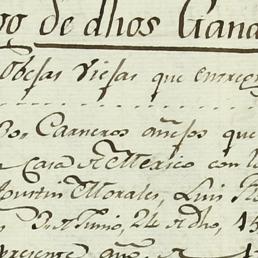 de dhos Gana
Obejas Viejas que entreg
Carneros añejos que
Casa A Mexico con l
Agustin Morales, Luis
Junio, 24 A dho, 15
presente año A